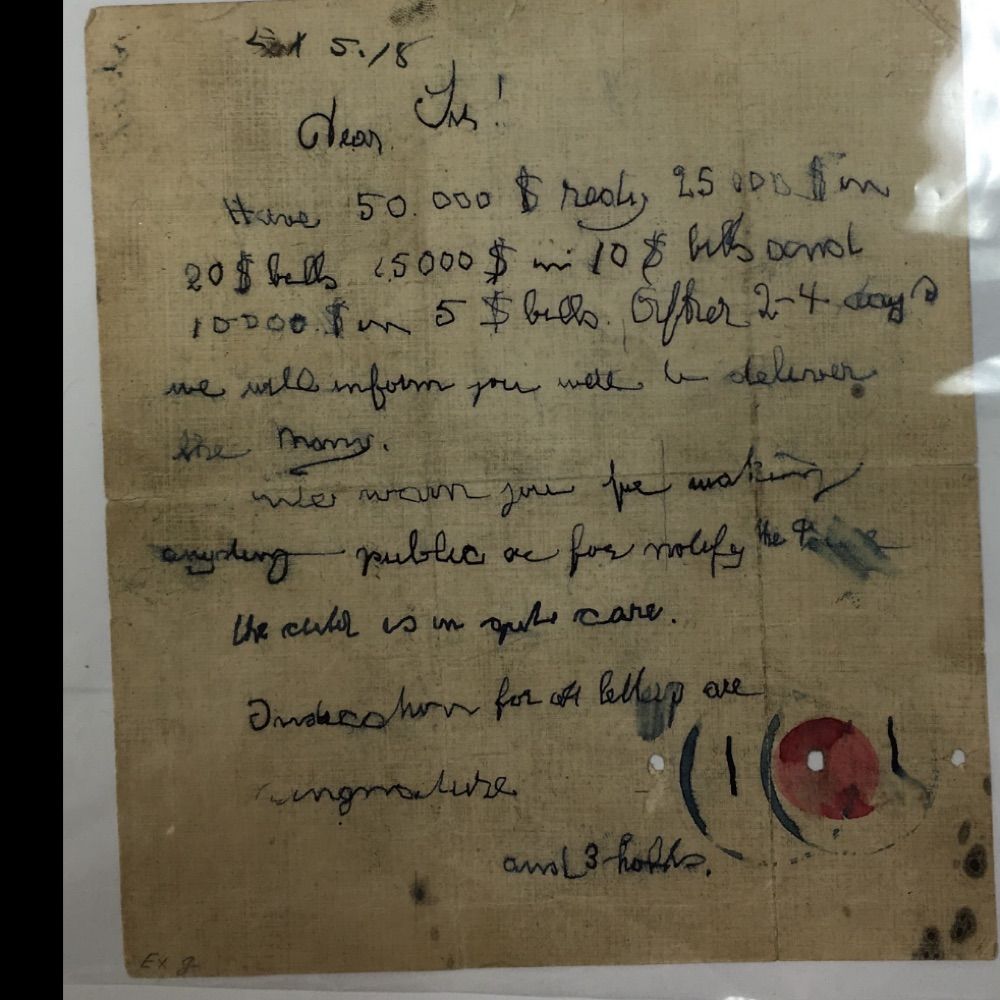 Dear Sir!
Have 50.000 $ redy 25000 $ in
20 $ bills 15000 $ in 10 $ bills and
10000 $ in 5 $ bills. After 2-4 days
we will inform you were to deliver
the Mony.
We warn you for making
anyding public or for notify the
the child is in gute care.
Indication for all letters are
singnature
and 3 holds.
Ex